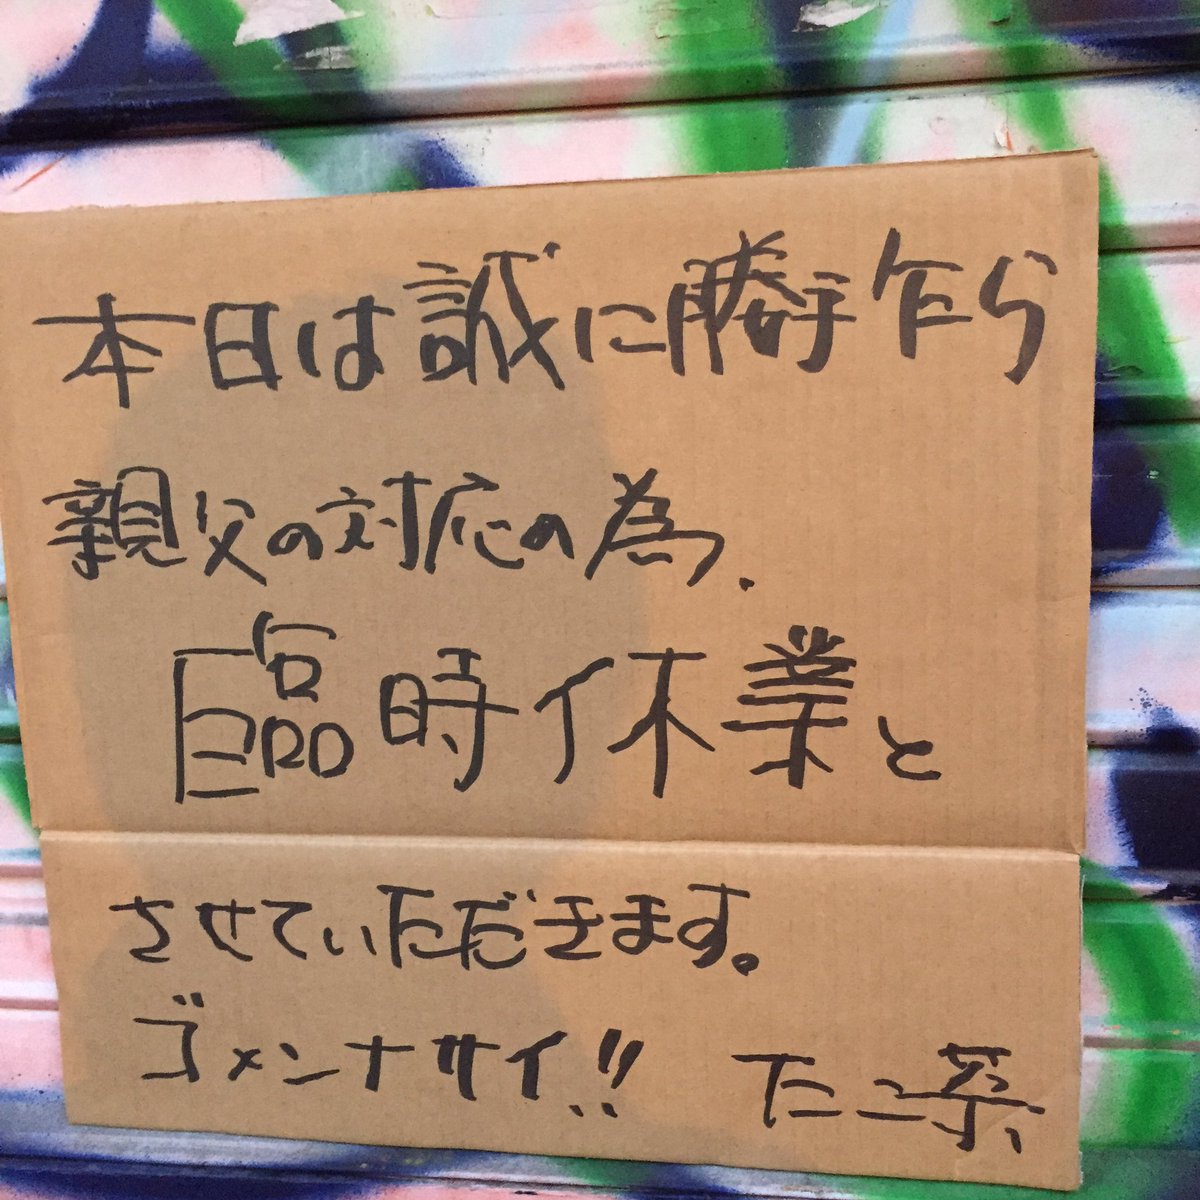 本日は誠に勝手乍ら
親父の対応の為、
臨時休業と
させていただきます。
ゴメンナサイ!! たこ祭